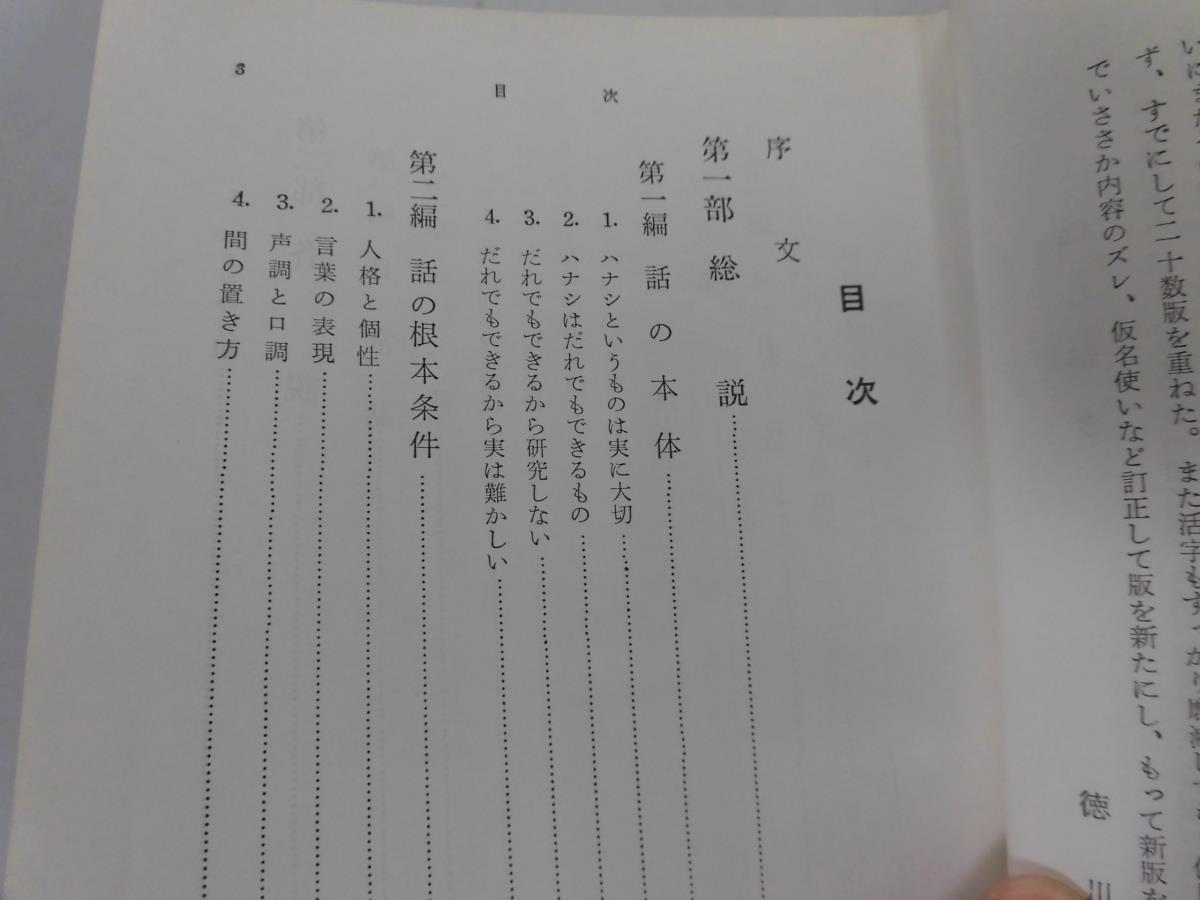 ず、すでにして二十数版を重ねた。また活字もすっかり
でいささか内容のズレ、仮名使いなど訂正して版を新たにし、もって新版な
徳川
目次
序文
第一部 総説
第一編 話の本体
1. ハナシというものは実に大切
2. ハナシはだれでもできるもの
3. だれでもできるから研究しない
4. だれでもできるから実は難かしい
第二編 話の根本条件
1. 人格と個性
2. 言葉の表現
3. 声調と口調
4. 間の置き方
目次
3